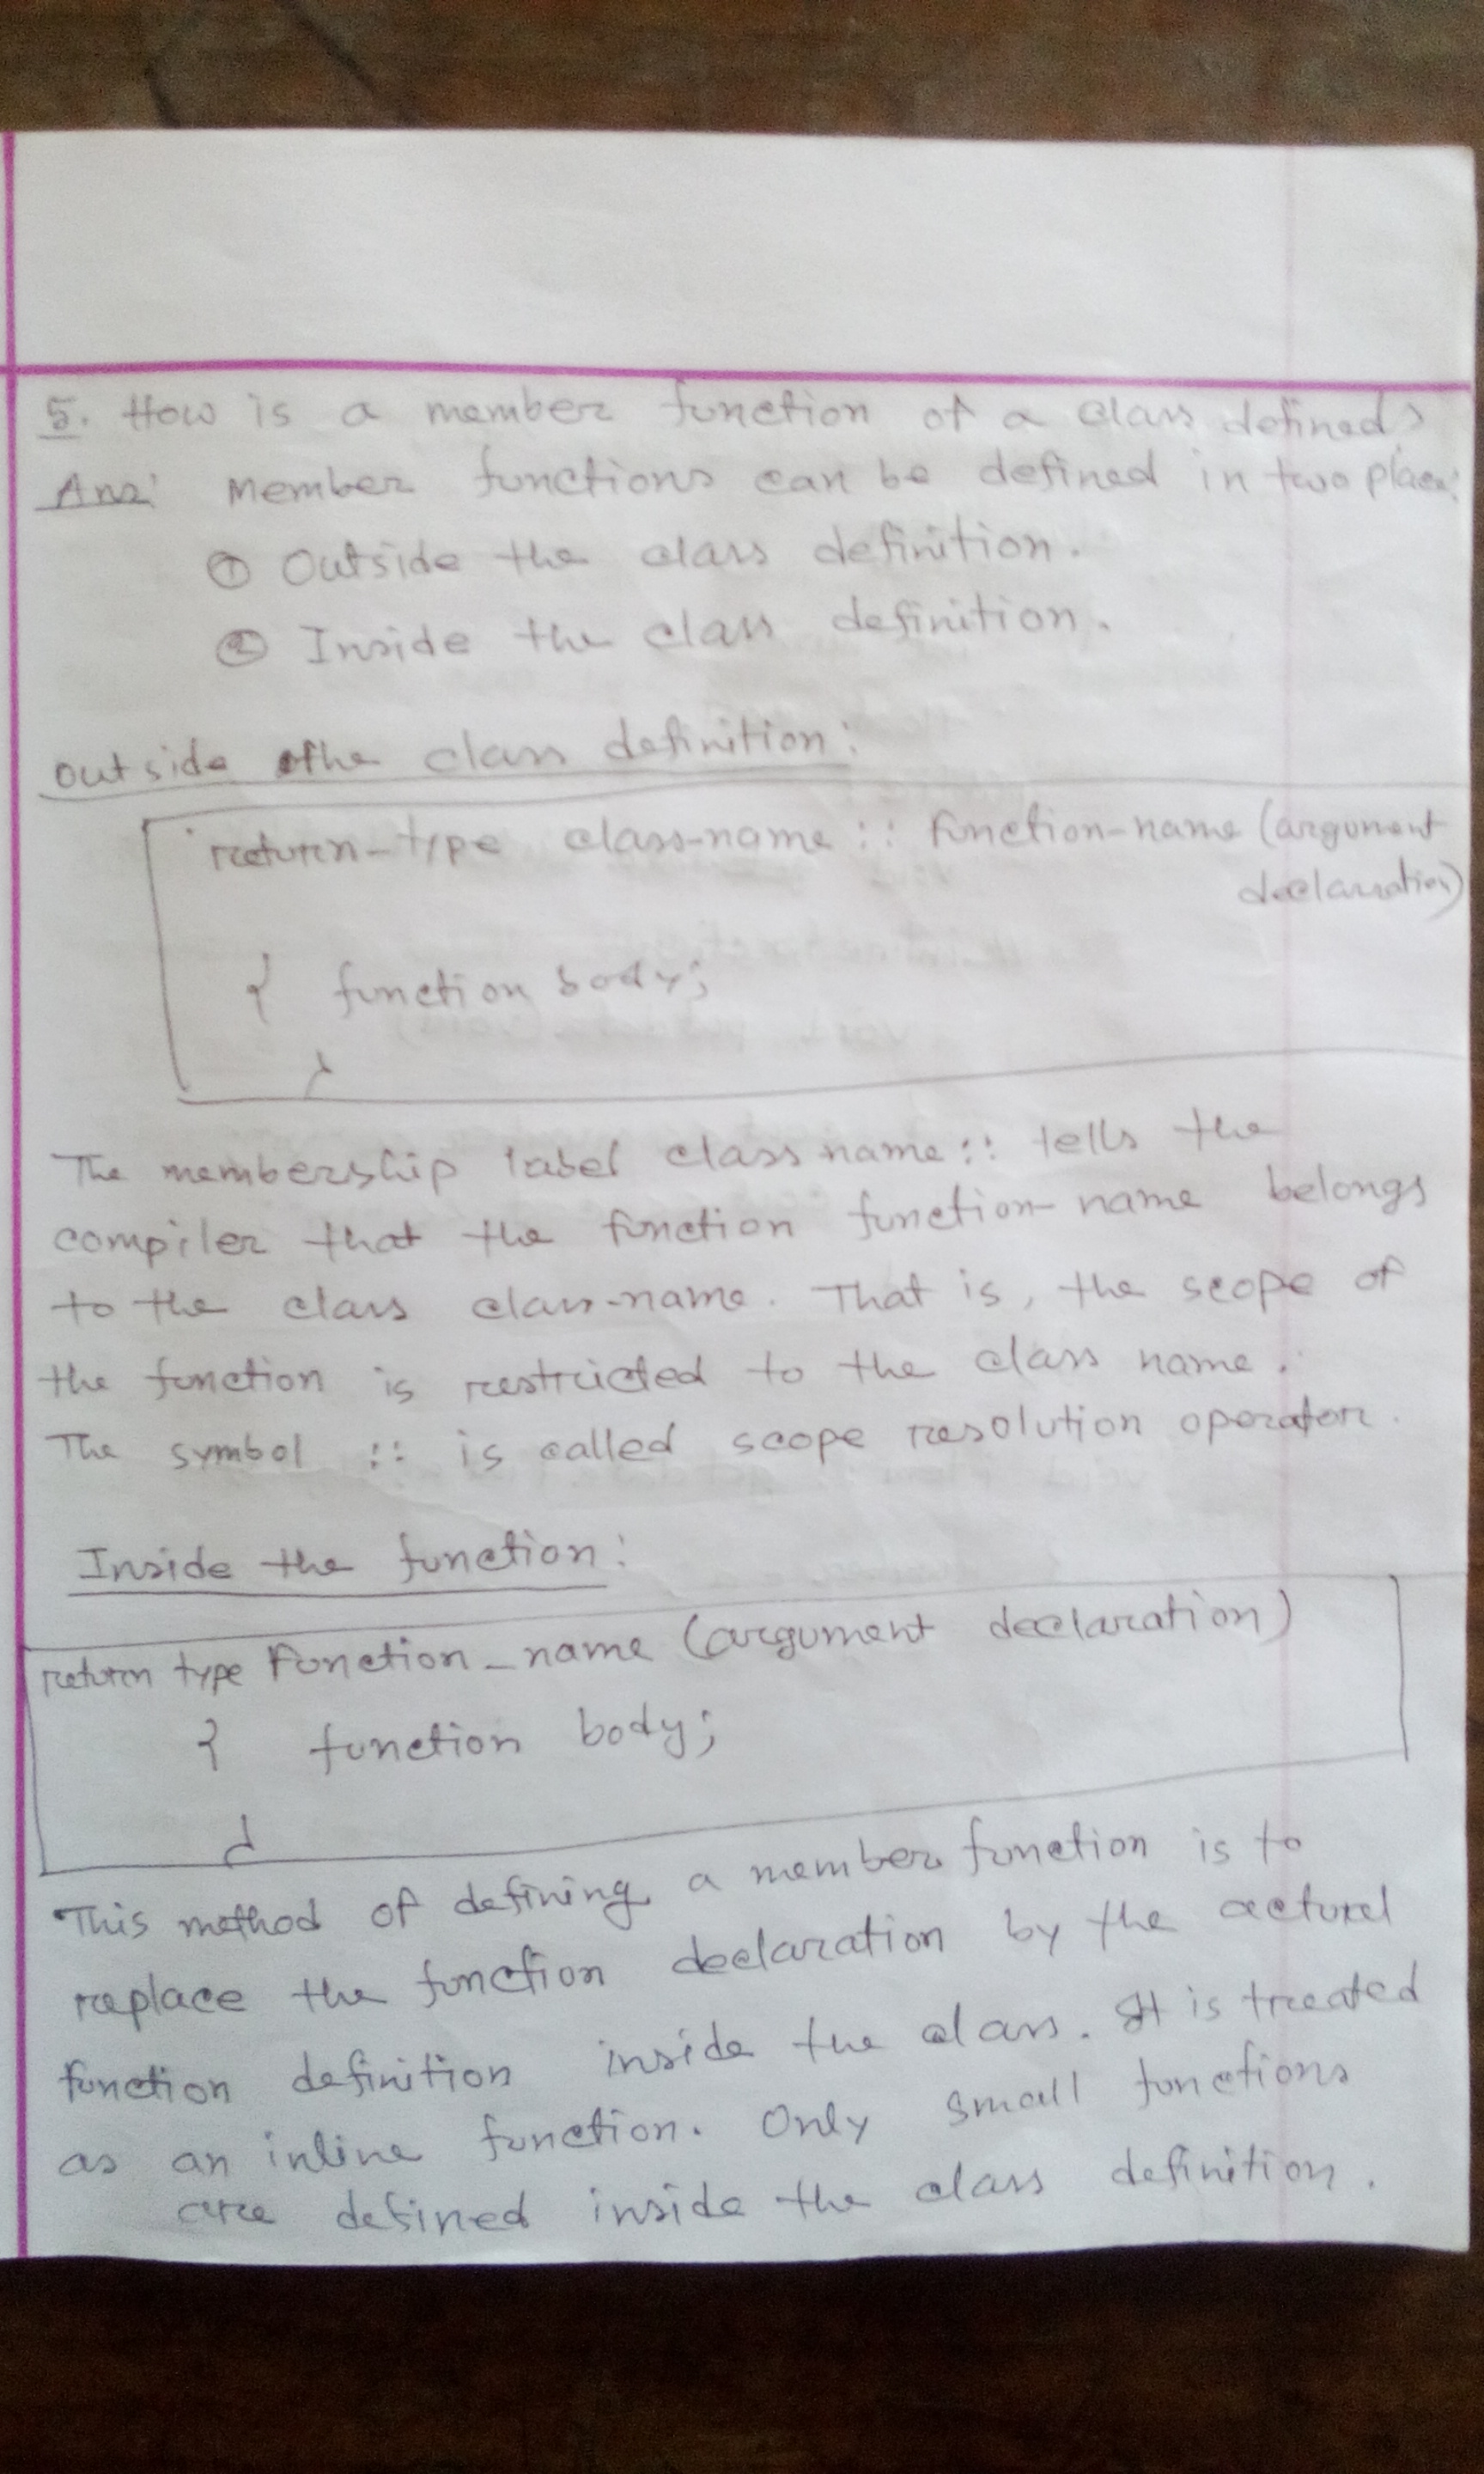 5. How is a member function of a class defined?
Ans: Member functions can be defined in two place:
① Outside the class definition.
② Inside the class definition.
Outside the class definition:
return-type class-name :: function-name (argument
declaration)
{ function body;
}
The membership label class name :: tells the
compiler that the function function-name belongs
to the class class-name. That is, the scope of
the function is restricted to the class name.
The symbol :: is called scope resolution operator.
Inside the function:
return type Function_name (argument declaration)
{ function body;
}
This method of defining a member function is to
replace the function declaration by the actural
function definition inside the class. It is treated
as an inline function. Only small functions
are defined inside the class definition.